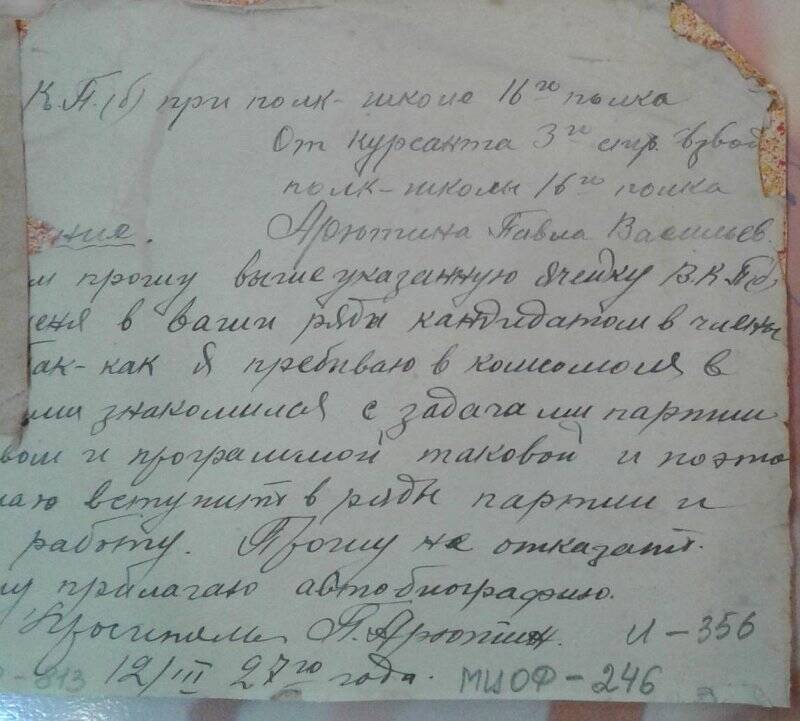 К.П.(б) при полк-школе 16го полка
От курсанта 3го стр. взвод
полк-школы 16го полка
ние. Арютина Павла Васильев.
м прошу вышеуказанную ячейку В.К.П(б)
еня в ваши ряды кандидатом в члены
так-как я пребываю в комсомоля в
ами знакомился с задачами партии
вом и программой таковой и поэто
лаю вступить в ряды партии и
работу. Прошу не отказать.
му прилагаю автобиографию.
Проситель П. Арютин. И-356
-813 12/III 27го года. МЦОФ-246